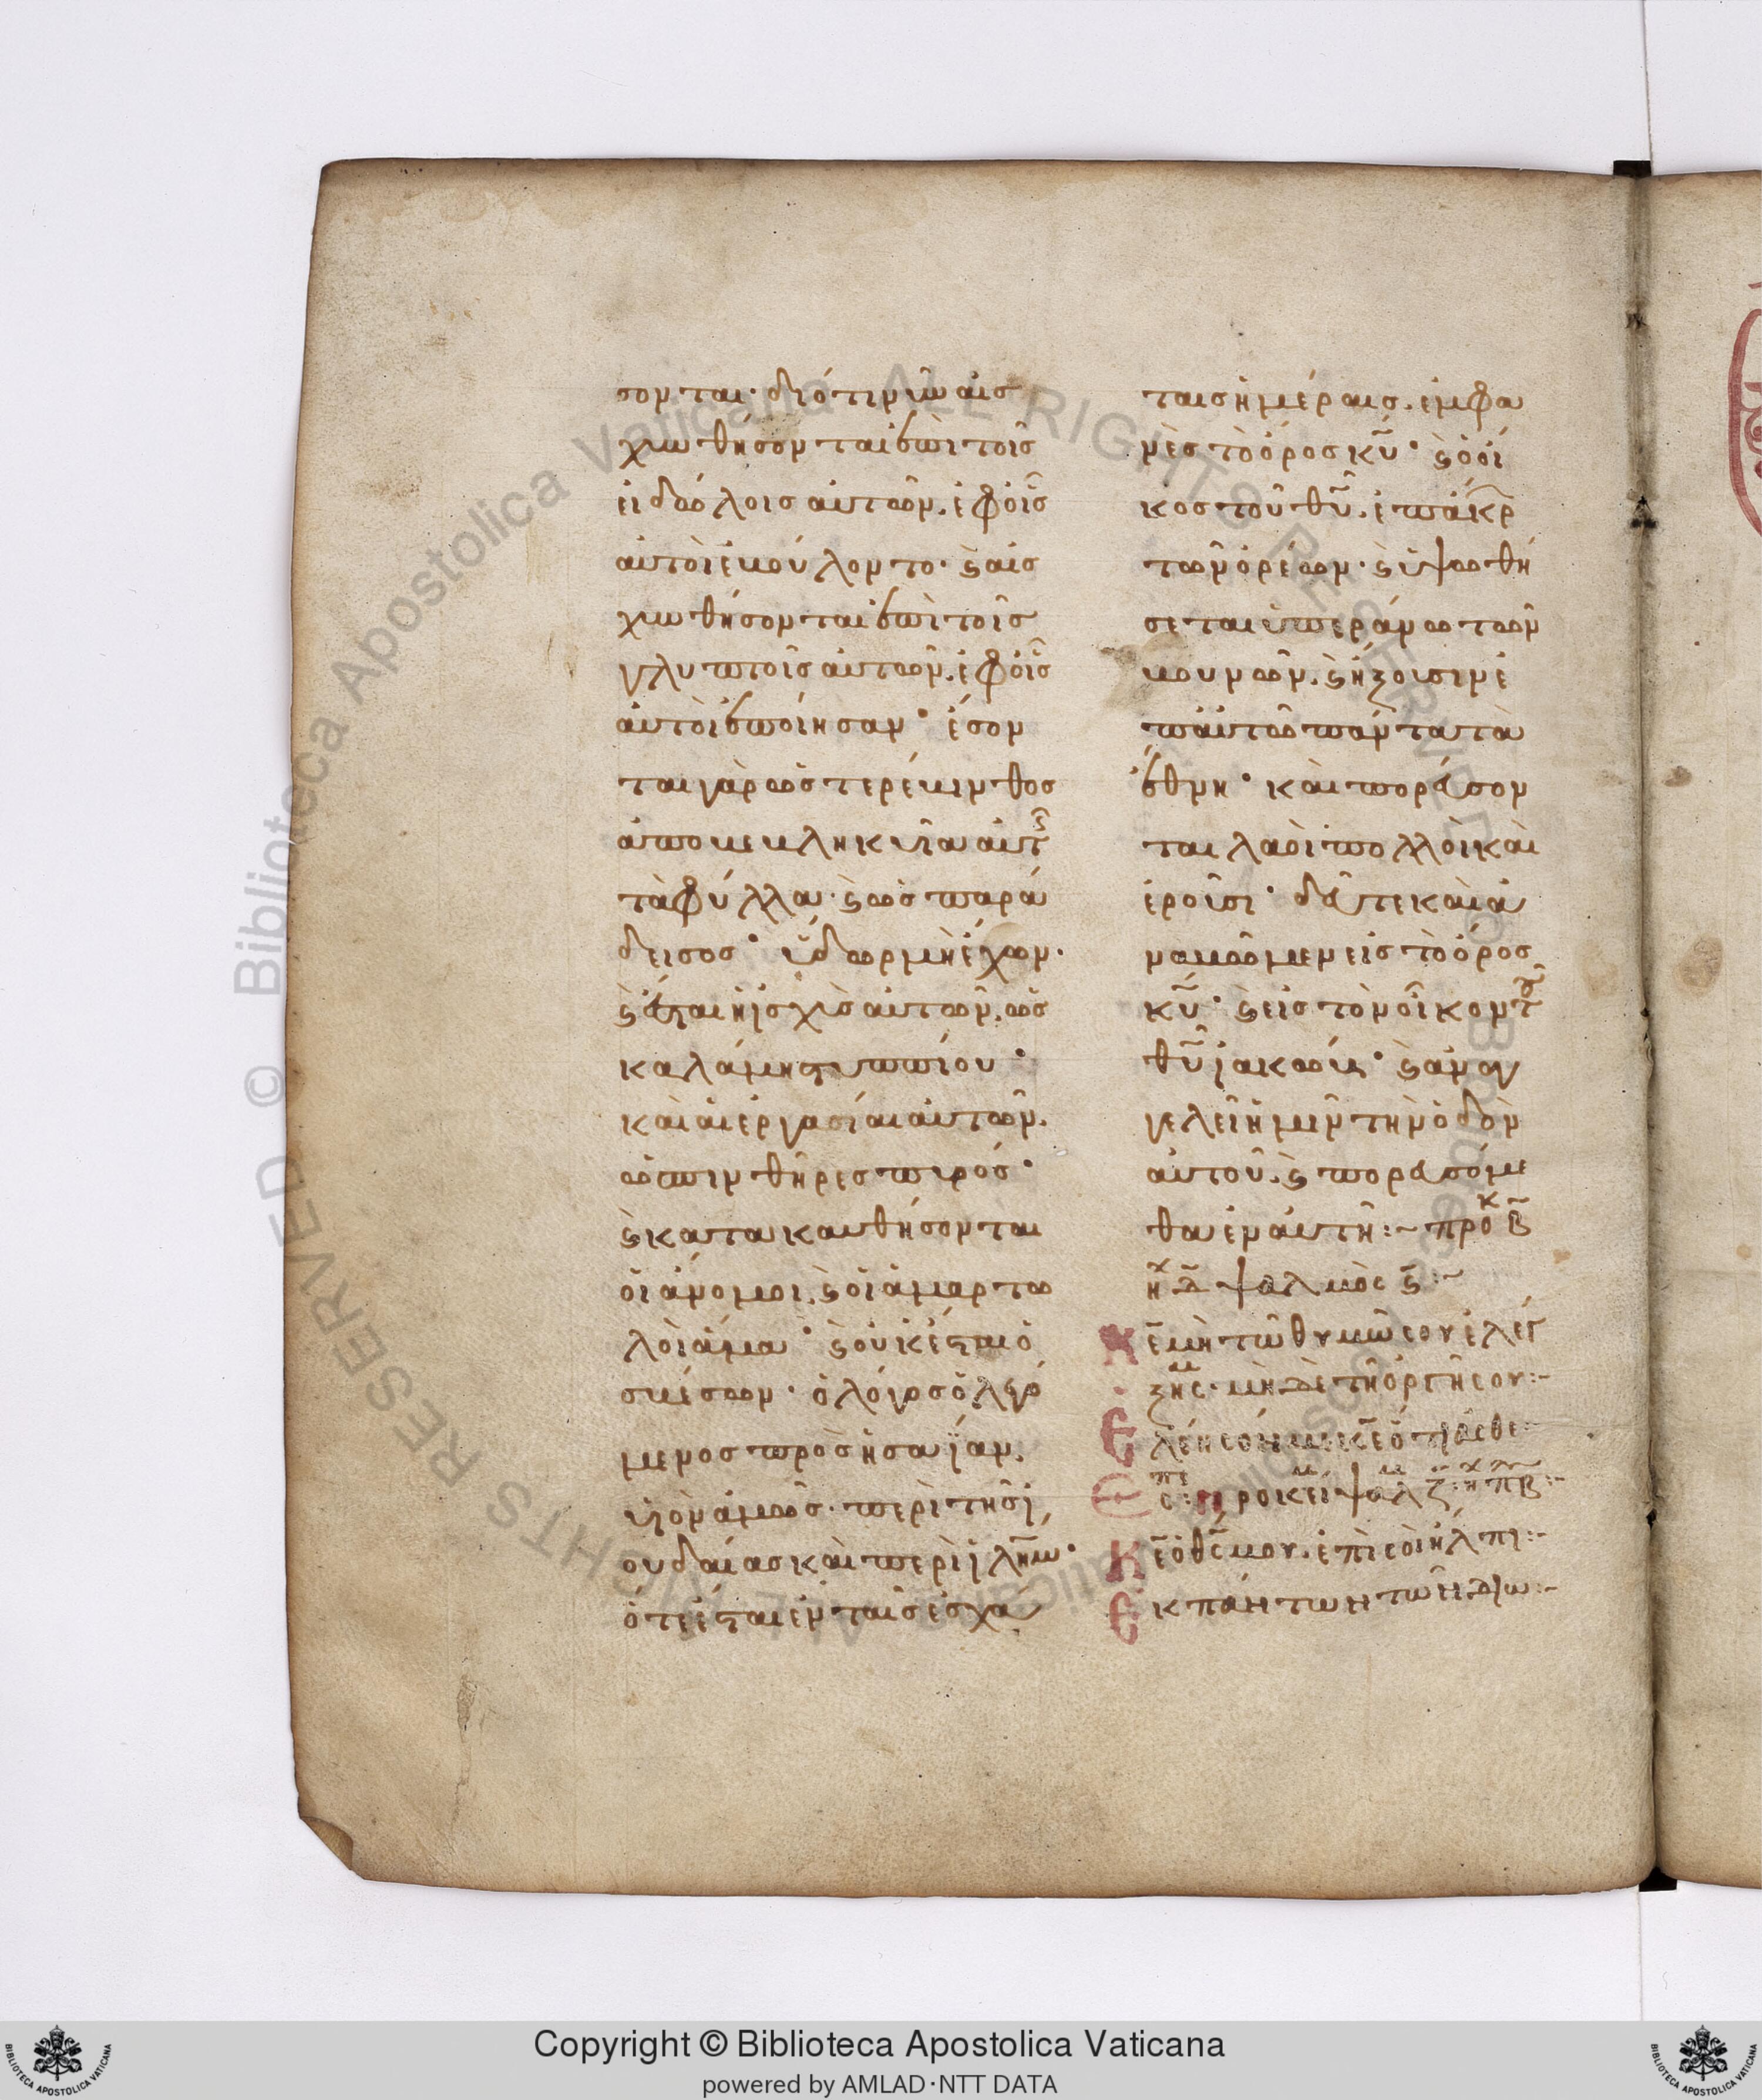 σονται· διότι νῦν αἰσ
χυνθήσονται ἐπὶ τοῖς
εἰδώλοις αὐτῶν. ἐφ οἷς
αὐτοὶ ἐβούλοντο· ϗ αἰσ
χυνθήσονται ἐπὶ τοῖς
γλυπτοῖς αὐτῶν. ἐφ οἷς
αὐτοὶ ἐποίησαν· ἔσον
ται γὰρ ὡς τερέβινθος
ἀποβεβληκυῖα αὐτ
τὰ φύλλα· ϗ ὡς παρά
δεισος· ὕδωρ μὴ ἔχων·
ϗ ἔσται ἡ ἰσχὺς αὐτῶν. ὡς
καλάμη στιππίου·
καὶ αἱ ἐργασίαι αὐτῶν.
ὡς σπινθῆρες πυρός·
ϗ κατακαυθήσονται
οἱ ἄνομοι. ϗ οἱ ἁμαρτω
λοὶ ἅμα· ϗ οὐκ ἔσται ὁ
σβέσων· ὁ λόγος ὁ γενό
μενος πρὸς ἡσαΐαν.
υἱὸν ἀμώς· περὶ τῆς ἰ
ουδαίας καὶ περὶ ἰλημ·
ὅτι ἔσται ἐν ταῖς ἐσχά
ταις ἡμέραις. ἐμφα
νὲς τὸ ὄρος κυ· ϗ ὁ οἶ
κος τοῦ θυ. ἐπ ἄκρ
τῶν ὀρέων· ϗ ὑψωθή
σεται ὑπεράνω τῶν
βουνῶν. ϗ ἥξουσιν ἐ
π αὐτῶ πάντα τὰ
ἔθνη· καὶ πορεύσον
ται λαοὶ πολλοὶ καὶ
ἐροῦσι· δεῦτε καὶ ἀ
ναβῶμεν εἰς τὸ ὄρος
κυ· ϗ εἰς τὸν οἶκον τ
θυ ἰακώβ· ϗ ἀναγ
γελεῖ ἡμῖν τὴν ὁδὸν
αὐτοῦ. ϗ πορευσόμε
θα ἐν αὐτῆ:~ προκ β
ηχ δ ψαλμὸς ϛ:~
κε μὴ τῶ θυμῶ σου ἐλέγ
ξης μ· μὴ δὲ τῆ ὀργῆ σου:-
Ἐλέησόν με κε ὅτι ἀσθε:
προκεί ψαλ ζ: ηχ πλ β:-
Κε ὁ θς μου. ἐπὶ σοὶ ἤλπι:-
Ἐκ πάντων τῶν διω:-
Copyright © Biblioteca Apostolica Vaticana
powered by AMLAD·NTT DATA